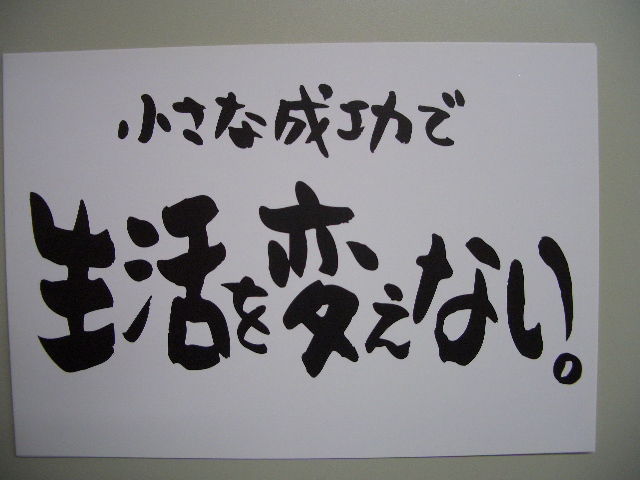 小さな成功で
生活を変えない。